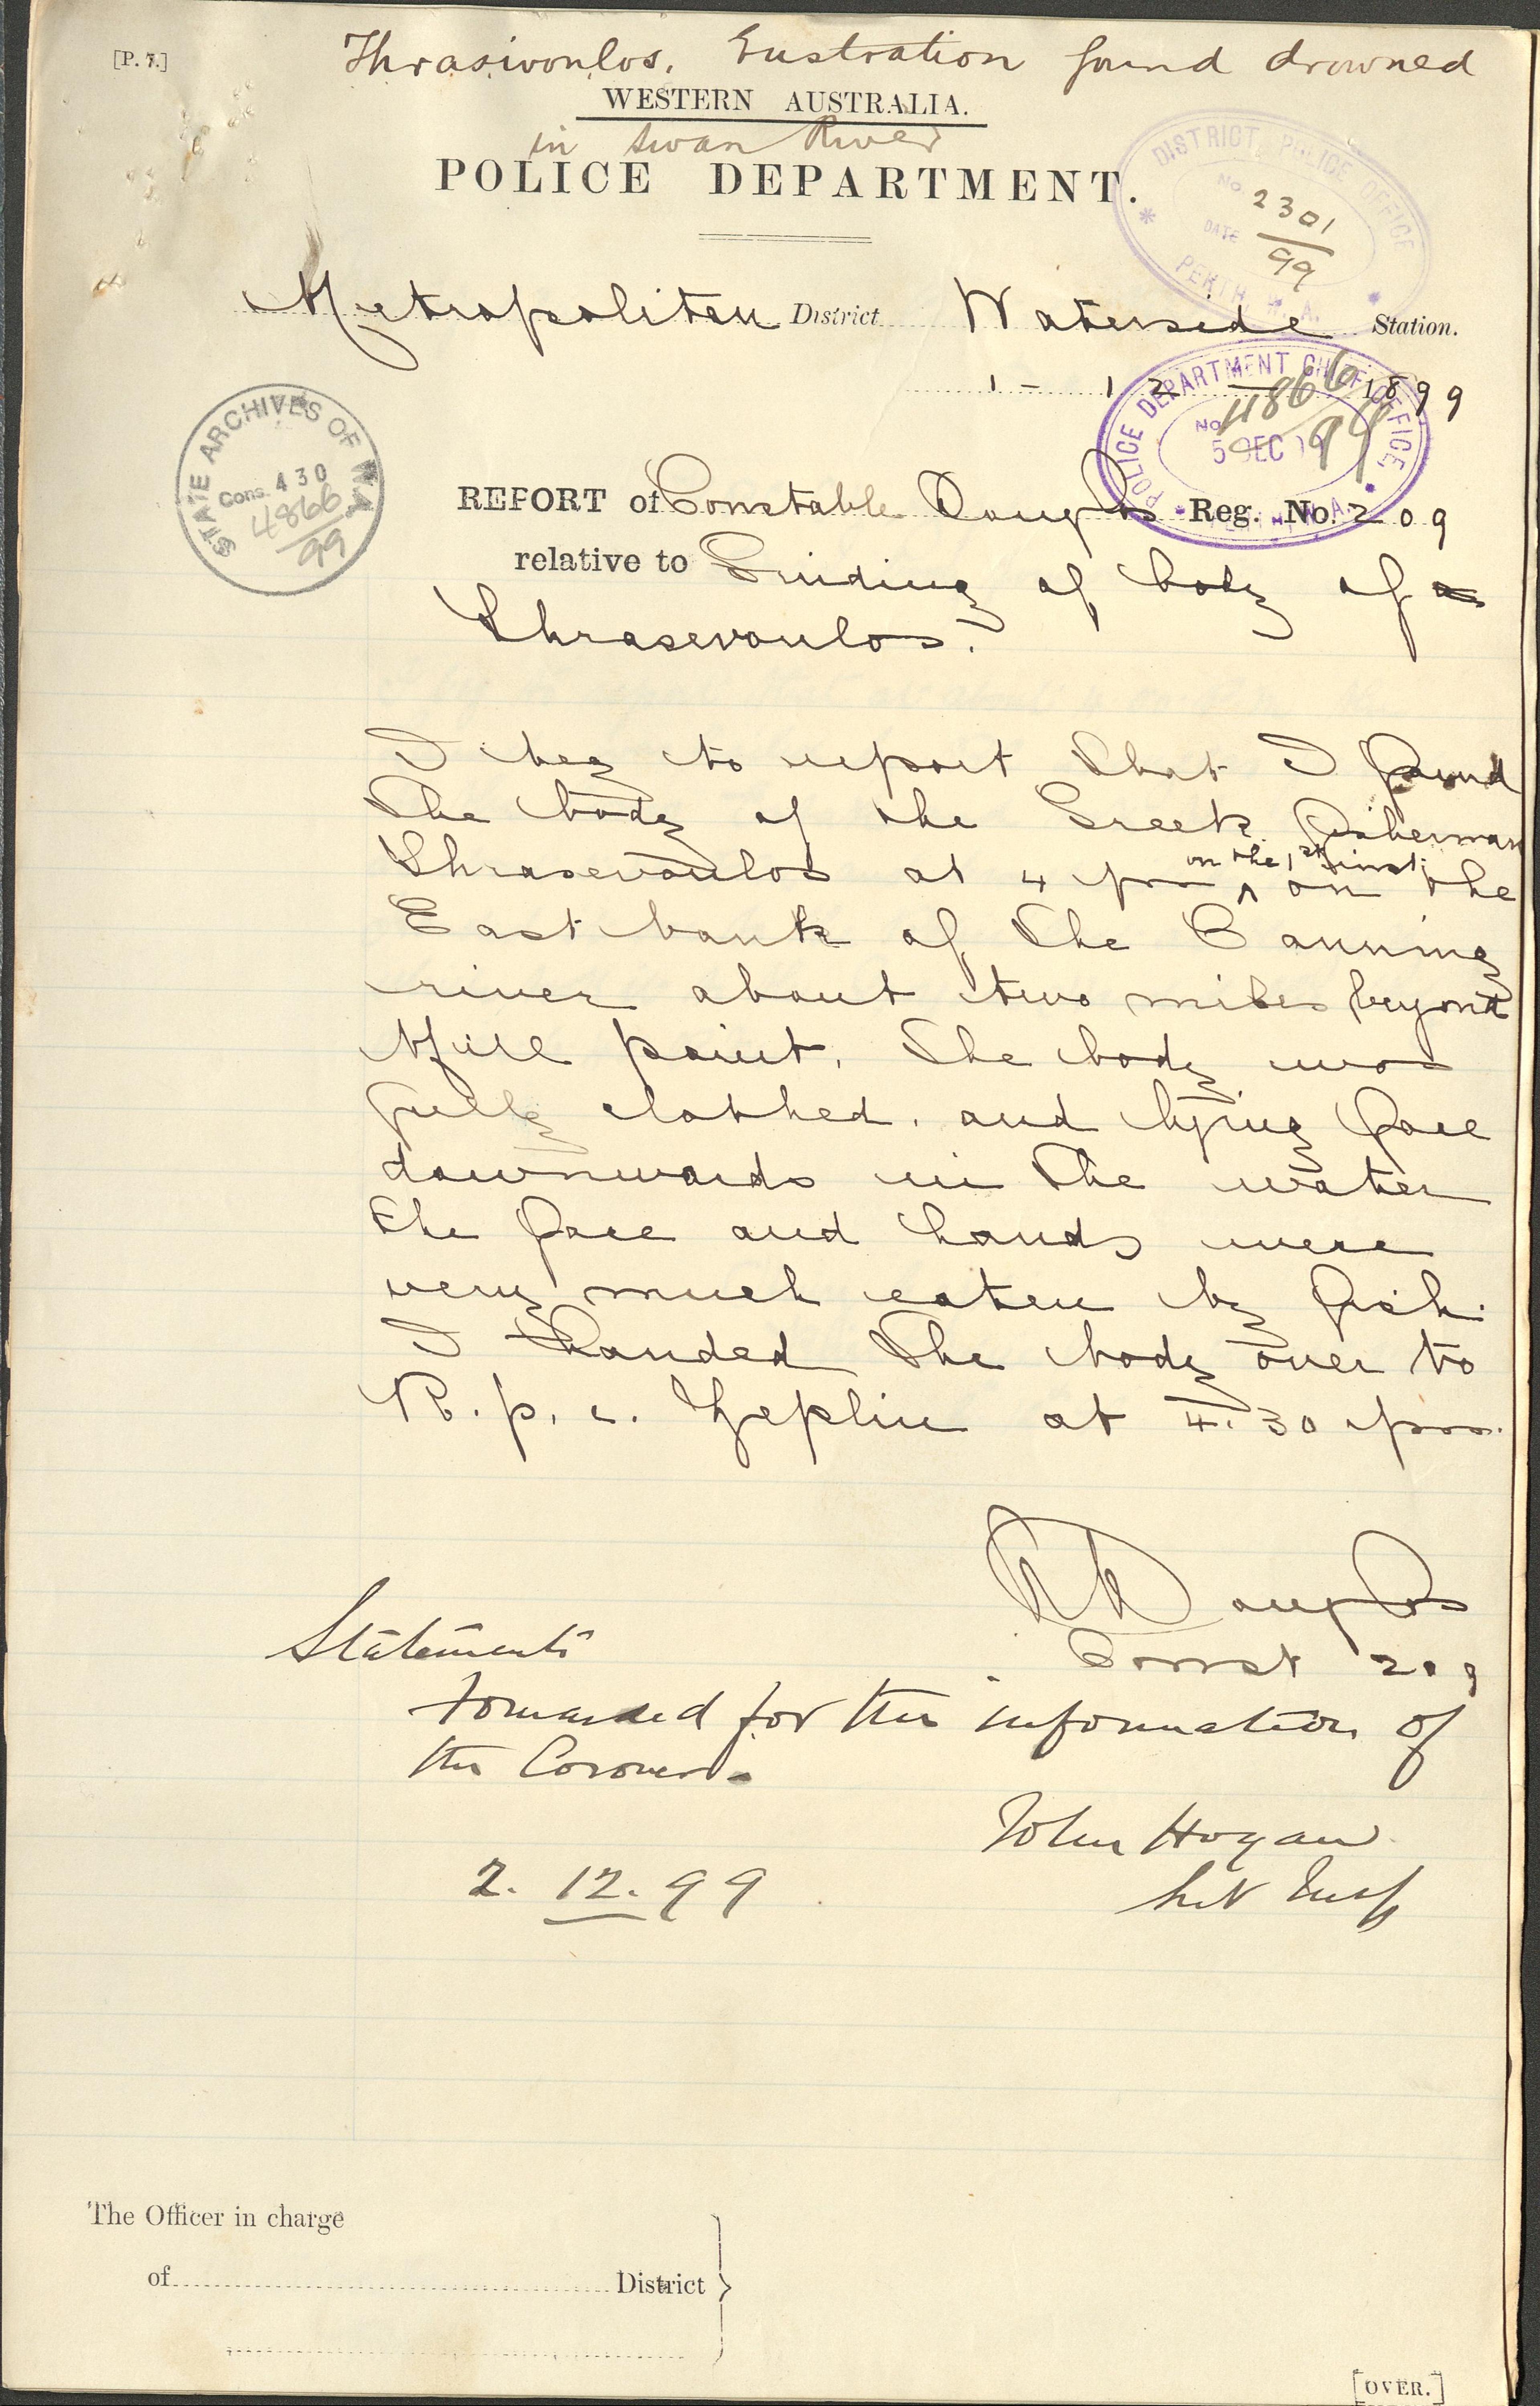 [P. 7.]
Thrasivoulos. Eustration found drowned
WESTERN AUSTRALIA.
in Swan River
POLICE DEPARTMENT.
DISTRICT POLICE OFFICE
No 2301
DATE 99
PERTH, W.A.
Metropolitan District Waterside Station.
1 - 12 1899
POLICE DEPARTMENT CHIEF OFFICE,
No. 4866
5 DEC 99
PERTH, W.A.
STATE ARCHIVES OF W.A.
Cons. 430
4866
99
REPORT of Constable Douglas Reg. No. 209
relative to Finding of body of
Thrasevoulos.
I beg to report that I found
the body of the Greek fisherman
Thrasevoulos at 4 pm on the 1st inst. on the
East bank of the Canning
river about two miles beyond
Mill point. The body was
fully clothed. and lying face
downwards in the water
the face and hands were
very much eaten by fish.
I handed the body over to
R. p. c. Zeplin at 4.30 pm.
Douglas
Const 209
Statements
Forwarded for the information of
the Coroner.
John Hogan
Insp
2. 12. 99
The Officer in charge
of District
[OVER.]